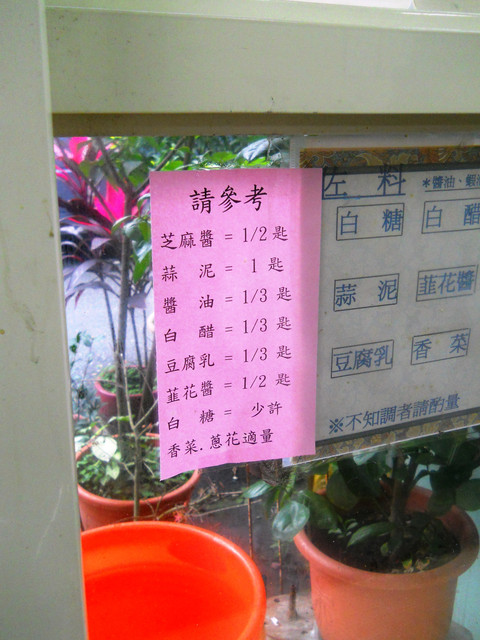 請參考
芝麻醬 = 1/2 匙
蒜 泥 = 1 匙
醬 油 = 1/3 匙
白 醋 = 1/3 匙
豆腐乳 = 1/3 匙
韮花醬 = 1/2 匙
白 糖 = 少許
香菜.蔥花適量
佐 料 *醬油、蝦
白 糖 白 醋
蒜 泥 韮花醬
豆腐乳 香 菜
※不知調者請酌量